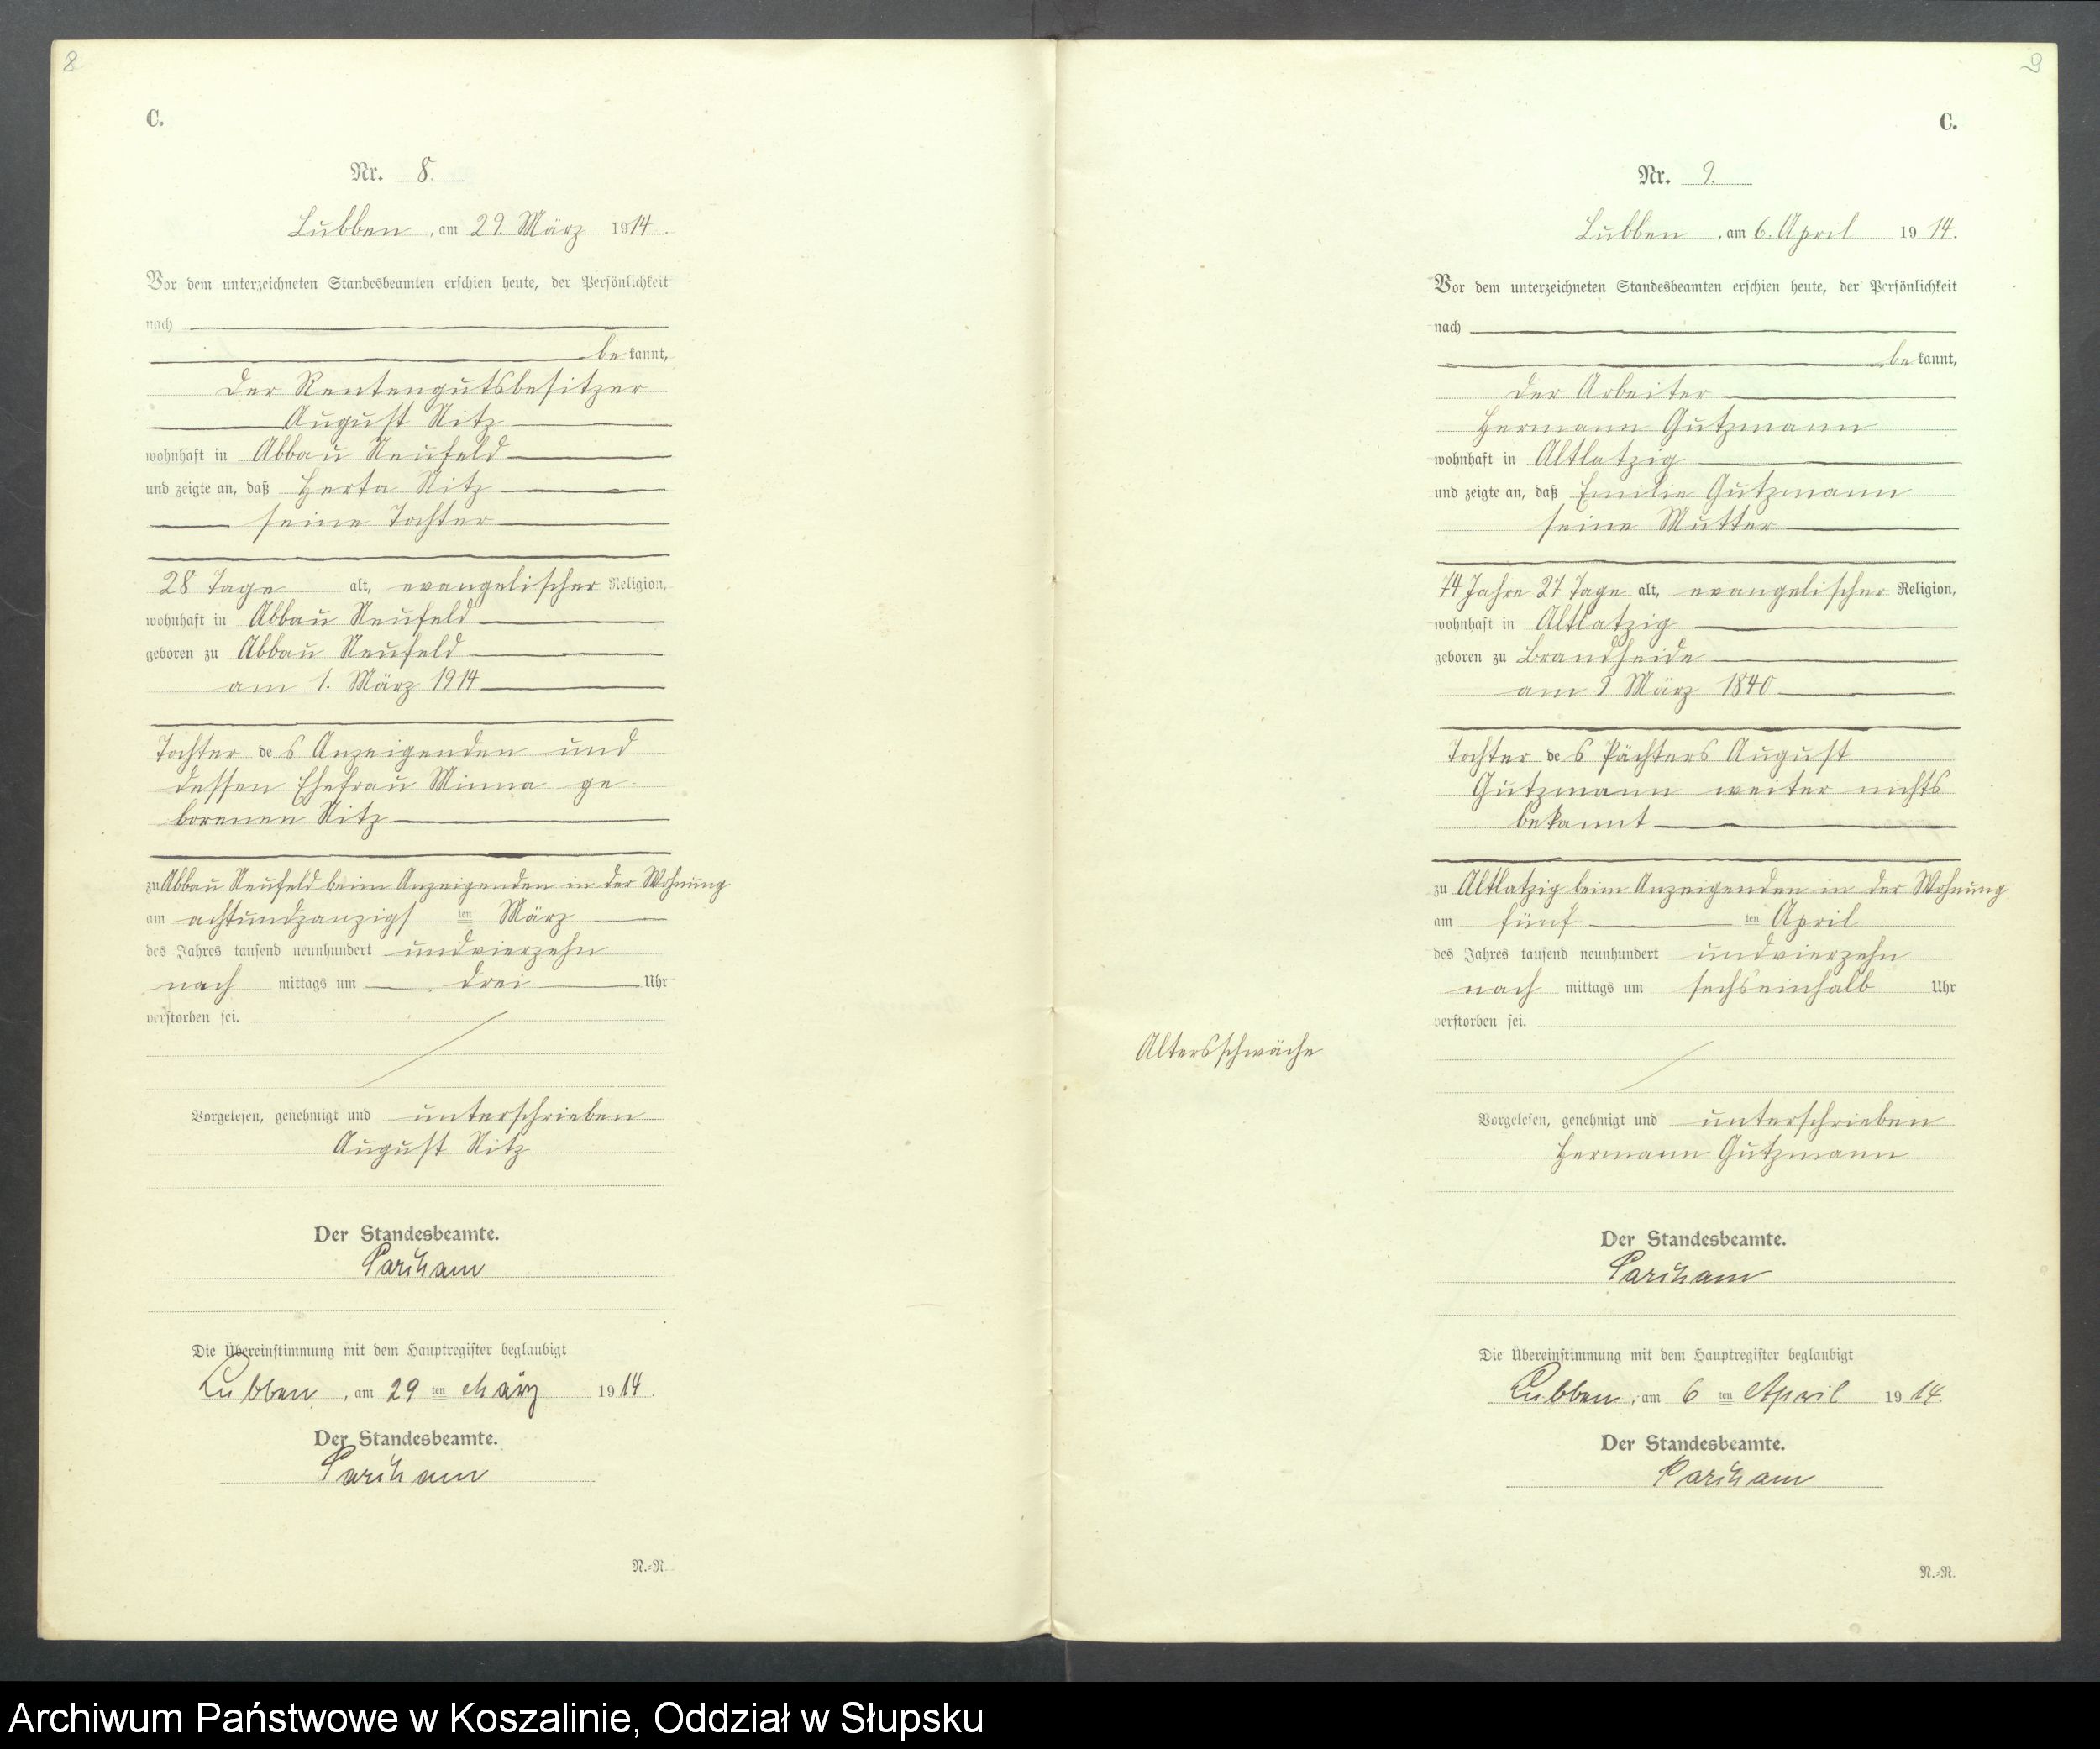 8
C.
Nr. 8.
Lubben, am 29. März 1914.
Vor dem unterzeichneten Standesbeamten erschien heute, der Persönlichkeit
nach
bekannt,
der Rentengutsbesitzer
August Nitz
wohnhaft in Abbau Neufeld
und zeigte an, daß Herta Nitz
seine Tochter
28 Tage alt, evangelischer Religion,
wohnhaft in Abbau Neufeld
geboren zu Abbau Neufeld
am 1. März 1914
Tochter des Anzeigenden und
dessen Ehefrau Minna ge-
borenen Nitz
zu Abbau Neufeld beim Anzeigenden in der Wohnung
am achtundzanzigsten März
des Jahres tausend neunhundert undvierzehn
nach mittags um drei Uhr
verstorben sei.
Vorgelesen, genehmigt und unterschrieben
August Nitz
Der Standesbeamte.
Die Übereinstimmung mit dem Hauptregister beglaubigt
Lubben, am 29 ten März 1914.
Der Standesbeamte.
N.=R.
9
C.
Nr. 9.
Lubben, am 6. April 1914.
Vor dem unterzeichneten Standesbeamten erschien heute, der Persönlichkeit
nach
bekannt,
der Arbeiter
Hermann Gutzmann
wohnhaft in Altlatzig
und zeigte an, daß Emilie Gutzmann
seine Mutter
74 Jahre 27 Tage alt, evangelischer Religion,
wohnhaft in Altlatzig
geboren zu Brandheide
am 9 März 1840
Tochter des Pächters August
Gutzmann weiter nichts
bekannt
zu Altlatzig beim Anzeigenden in der Wohnung
am fünf ten April
des Jahres tausend neunhundert undvierzehn
nach mittags um sechseinhalb Uhr
verstorben sei.
Altersschwäche
Vorgelesen, genehmigt und unterschrieben
Hermann Gutzmann
Der Standesbeamte.
Die Übereinstimmung mit dem Hauptregister beglaubigt
Lubben, am 6 ten April 1914.
Der Standesbeamte.
N.=R.
Archiwum Państwowe w Koszalinie, Oddział w Słupsku